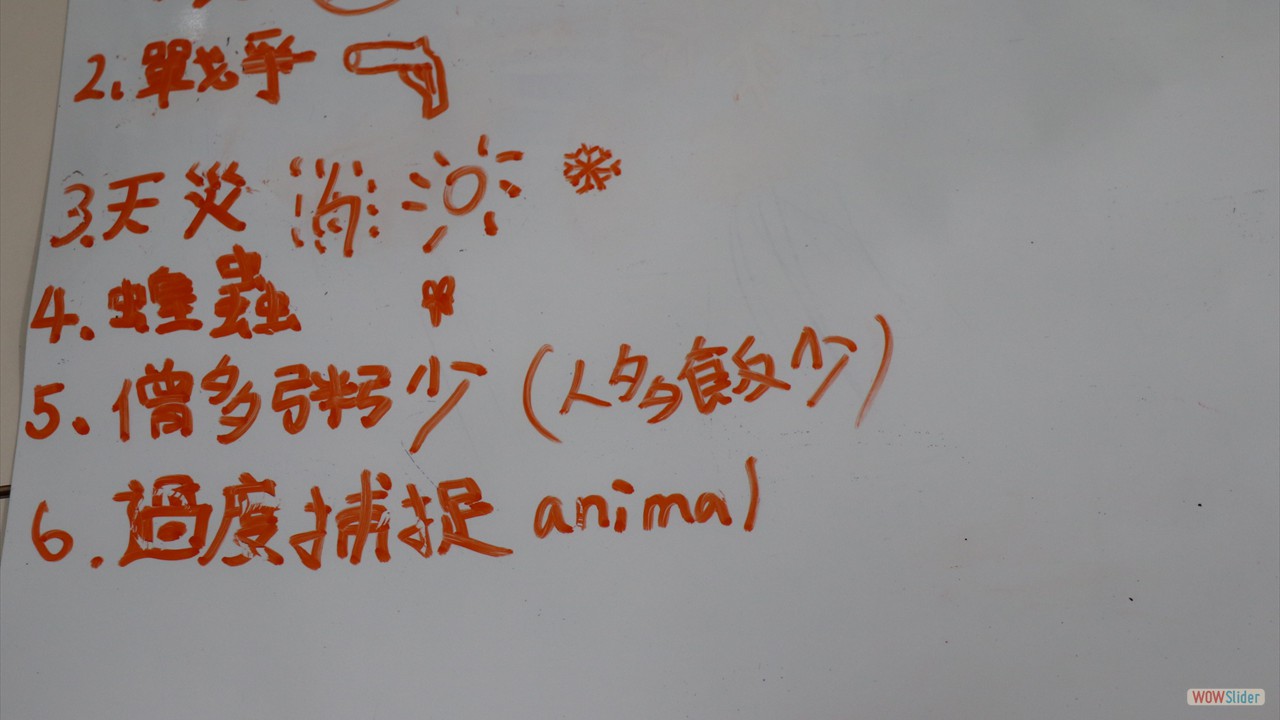 2. 戰爭
3. 天災
4. 蝗蟲
5. 僧多粥少 (人多飯少)
6. 過度捕捉 animal
WOWSlider